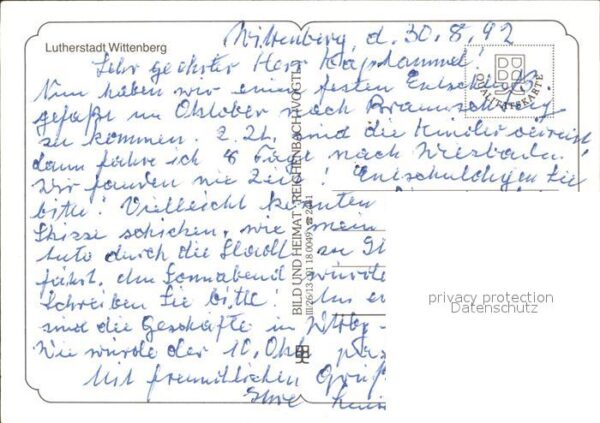 Lutherstadt Wittenberg
Wittenberg, d. 30.8.92
Sehr geehrter Herr
Nun haben wir einen festen Entschluß
gefaßt im Oktober nach Braunschweig
zu kommen. z. Zt. sind die Kinder verreist
dann fahre ich 8 Tage nach Wiesbaden.
Wir fanden nie Zeit! Entschuldigen Sie
bitte! Vielleicht könnten
Skizze schicken, wie mein
Auto durch die Stadt zu
fährt, den Sonnabend würde
Schreiben Sie bitte!
sind die Geschäfte in Wittbg.
Wie würde der 10. Okt.
Mit freundlichen Grüß
Ihre
QUALITÄTSKARTE
BILD UND HEIMAT REICHENBACH (VOGTL)
III/26/13 A1 18 0049
privacy protection
Datenschutz